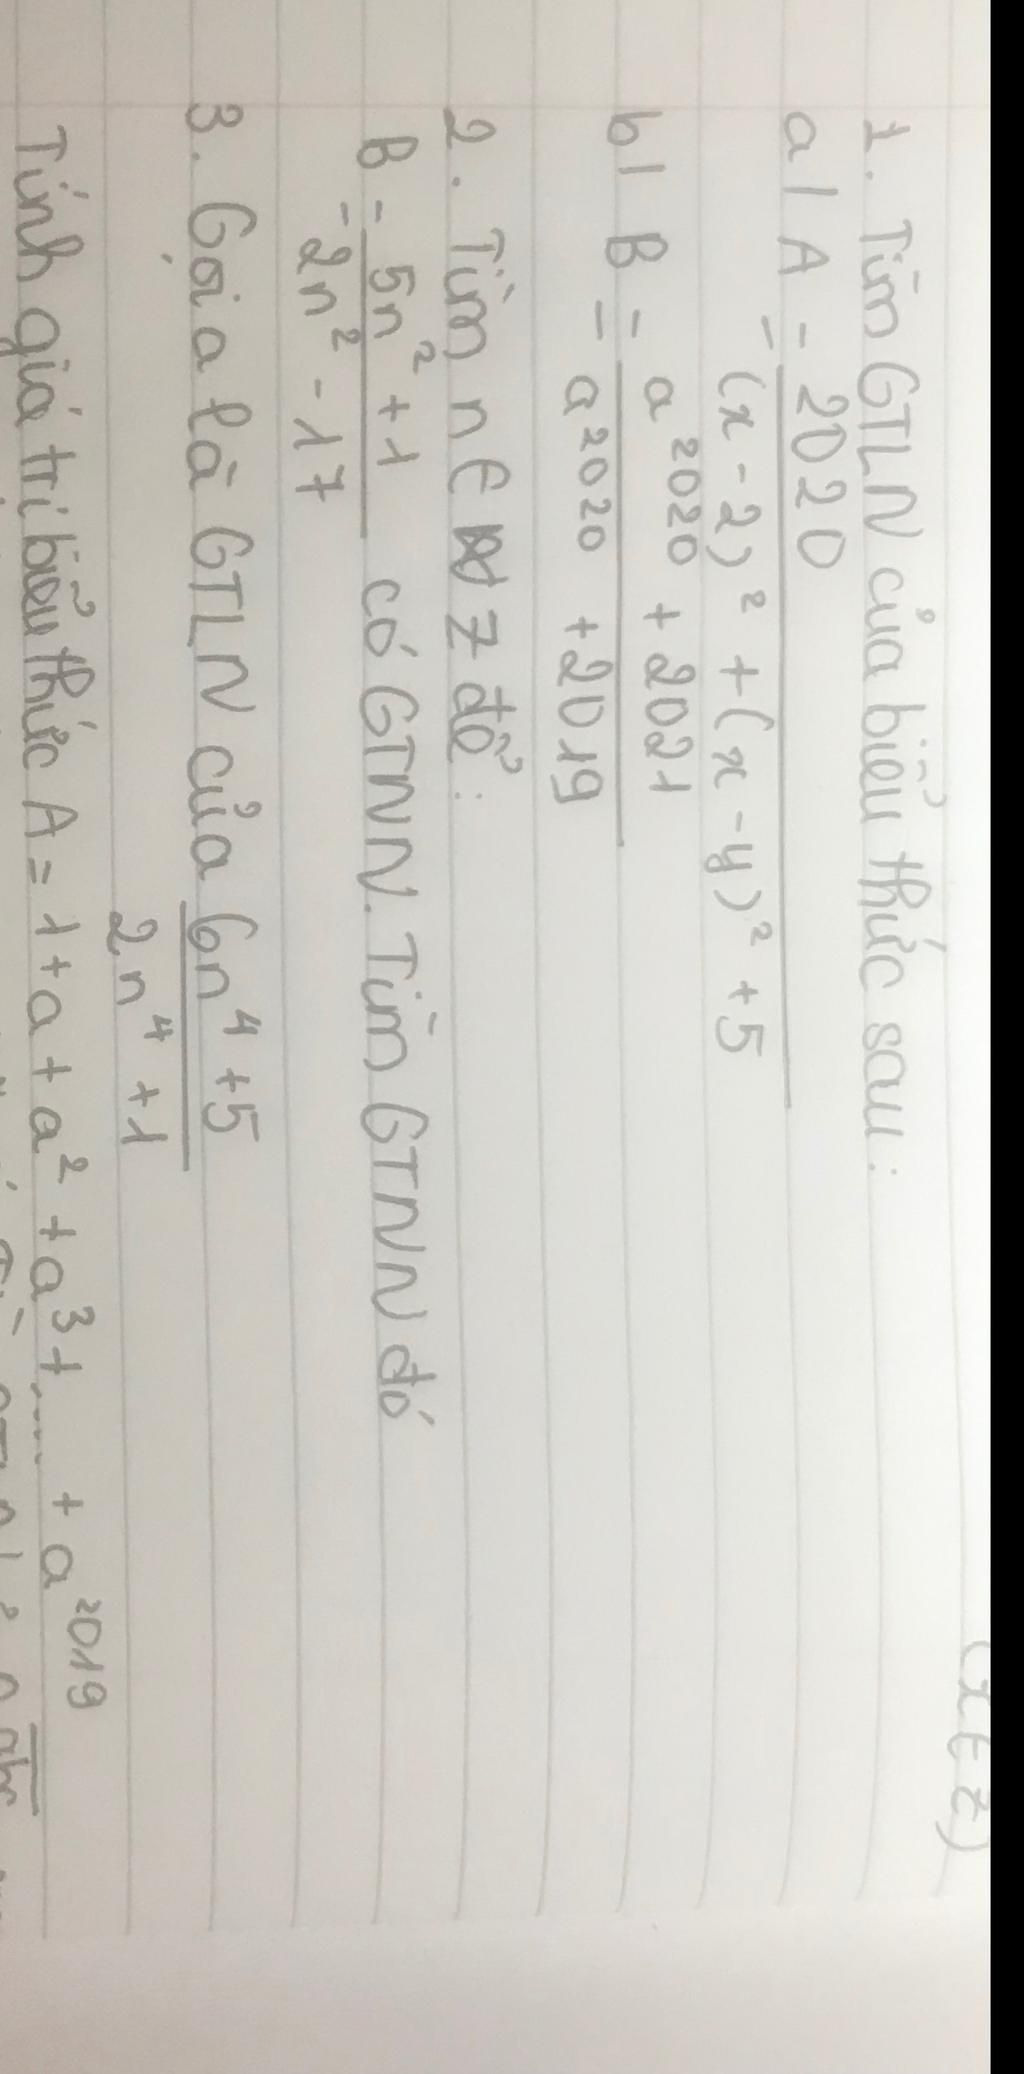 (x ∈ Z)
1. Tìm GTLN của biểu thức sau:
a/ A = 2020 / ((x-2)² + (x-y)² + 5)
b/ B = (a²⁰²⁰ + 2021) / (a²⁰²⁰ + 2019)
2. Tìm n ∈ Z để:
B = (5n² + 1) / (2n² - 17) có GTNN. Tìm GTNN đó
3. Gọi a là GTLN của (6n⁴ + 5) / (2n⁴ + 1)
Tính giá trị biểu thức A = 1 + a + a² + a³ + .... + a²⁰¹⁹